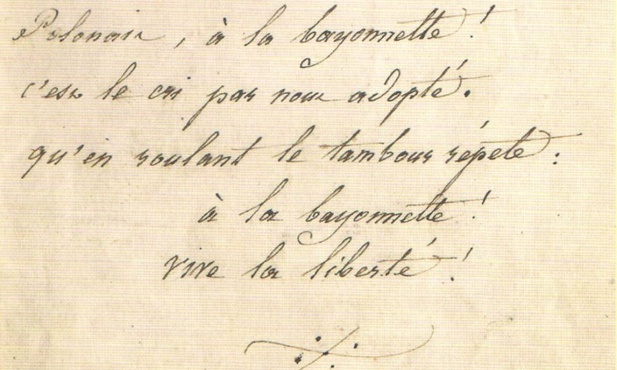 Polonais, à la bayonnette !
c'est le cri par nous adopté.
qu'en roulant le tambour répete :
à la bayonnette !
vive la liberté !